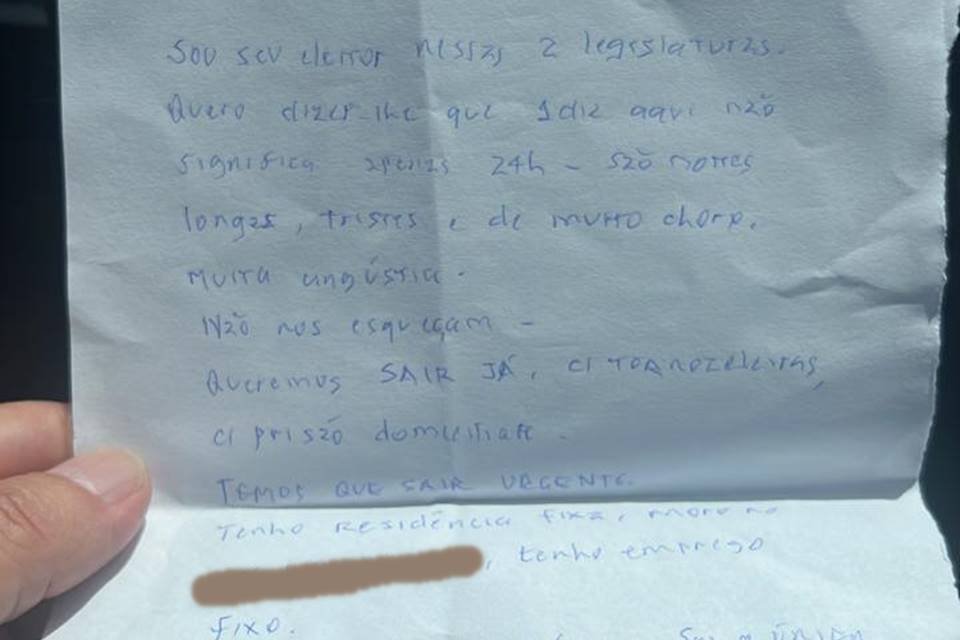 Sou seu eleitor nessas 2 legislaturas.
Quero dizer-lhe que 1 dia aqui não
significa apenas 24h - são noites
longas, tristes e de muito choro.
Muita angústia.
Não nos esqueçam -
Queremos SAIR JÁ, c/ TORNOZELEIRAS,
c/ prisão domiciliar.
TEMOS QUE SAIR URGENTE.
Tenho Residência fixa, moro no
, tenho emprego
fixo.